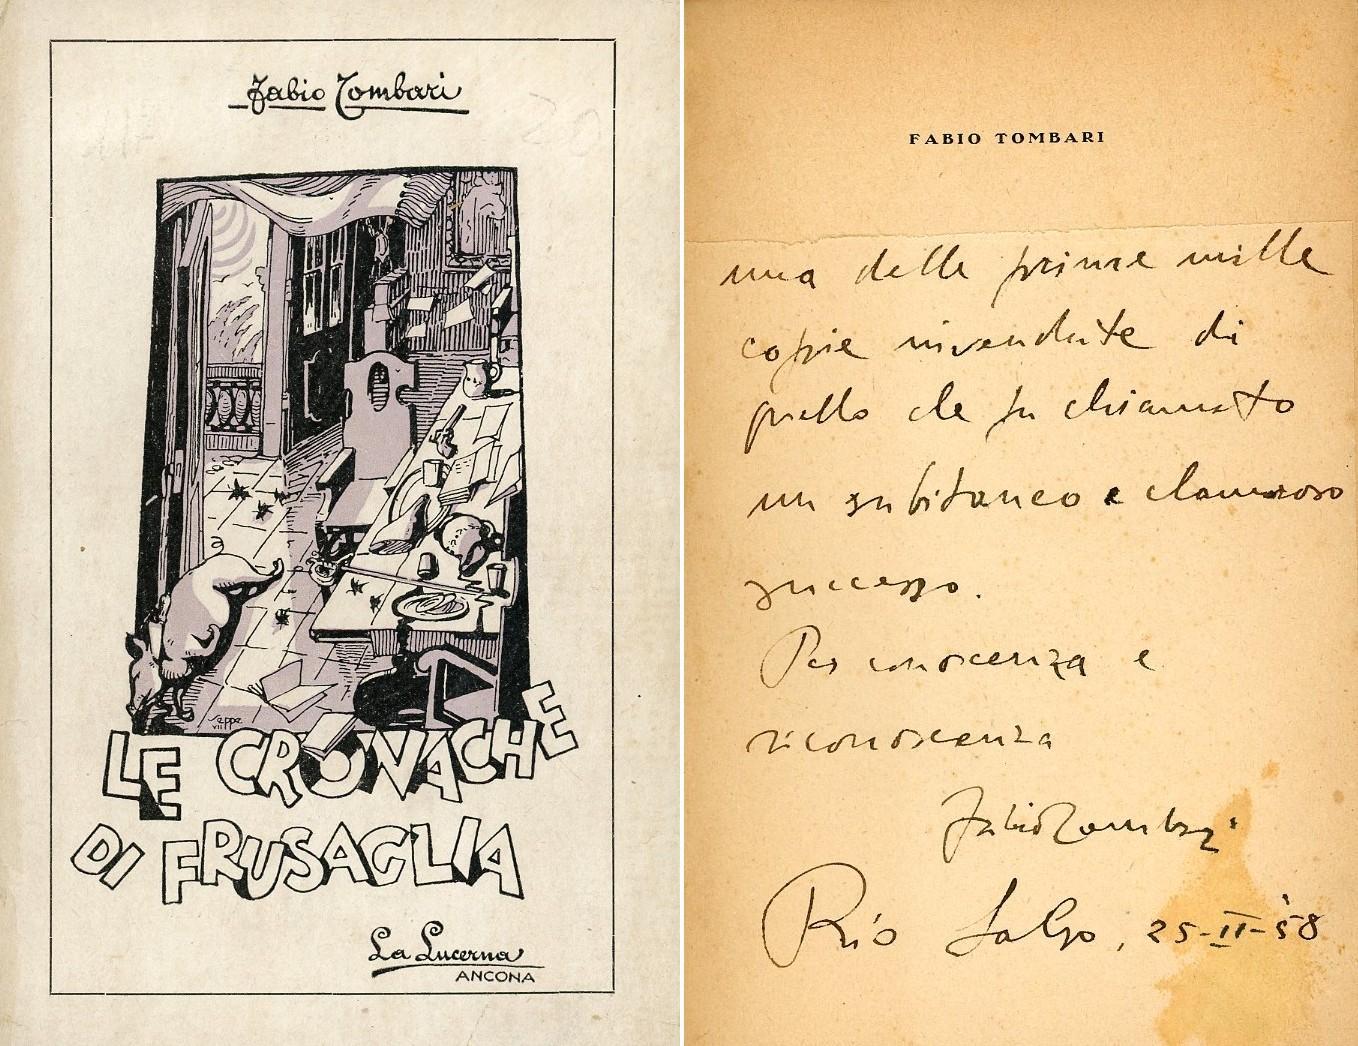 Fabio Tombari
Seppa
VII
LE CRONACHE
DI FRUSAGLIA
La Lucerna
ANCONA
FABIO TOMBARI
una delle prime mille
copie invendute di
quello che fu chiamato
un subitaneo e clamoroso
successo.
Per conoscenza e
riconoscenza
Fabio Tombari
Rio Salso, 25-II-'58